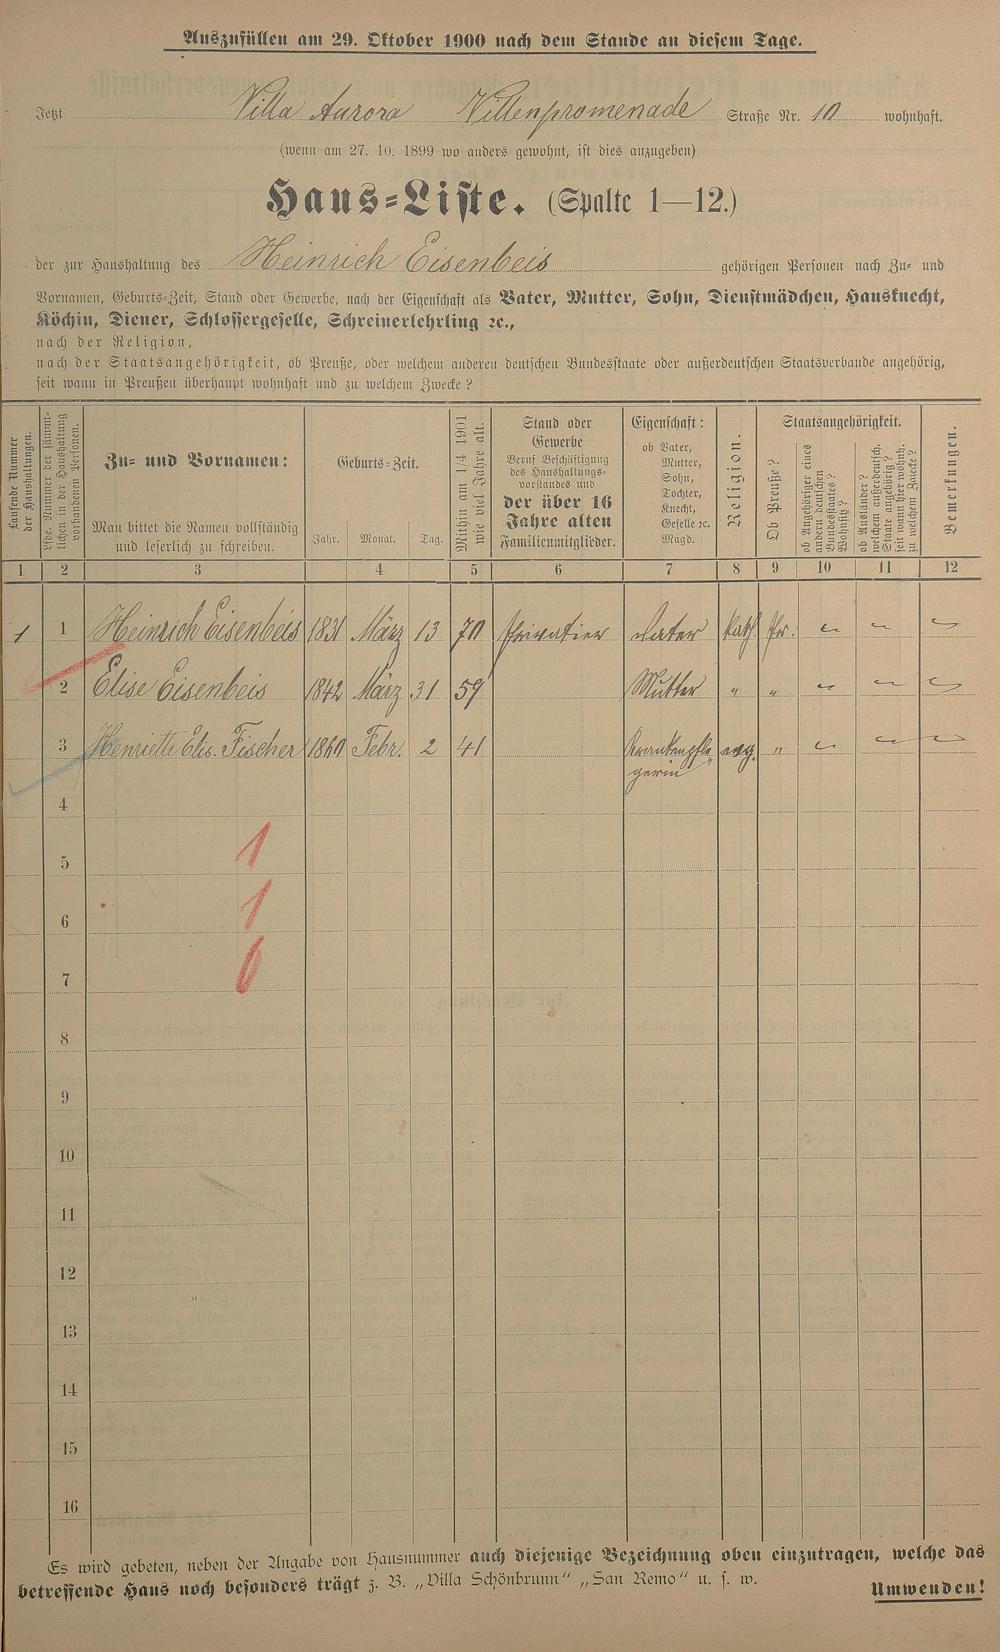 Auszufüllen am 29. Oktober 1900 nach dem Stande an diesem Tage.
Jetzt Villa Aurora Villenpromenade Straße Nr. 10 wohnhaft.
(wenn am 27. 10. 1899 wo anders gewohnt, ist dies anzugeben)
Haus-Liste. (Spalte 1—12.)
der zur Haushaltung des Heinrich Eisenbeis gehörigen Personen nach Zu- und
Vornamen, Geburts-Zeit, Stand oder Gewerbe, nach der Eigenschaft als Vater, Mutter, Sohn, Dienstmädchen, Hausknecht,
Köchin, Diener, Schlossergeselle, Schreinerlehrling ꝛc.,
nach der Religion,
nach der Staatsangehörigkeit, ob Preuße, oder welchem anderen deutschen Bundesstaate oder außerdeutschen Staatsverbande angehörig,
seit wann in Preußen überhaupt wohnhaft und zu welchem Zwecke?
Laufende Nummer
der Haushaltungen.
Lfde. Nummer der sämmt-
lichen in der Haushaltung
vorhandenen Personen.
Zu- und Vornamen:
Man bittet die Namen vollständig
und leserlich zu schreiben.
Geburts-Zeit.
Jahr. Monat. Tag.
Mithin am 1/4 1901
wie viel Jahre alt.
Stand oder
Gewerbe
Beruf Beschäftigung
des Haushaltungs-
vorstandes und
der über 16
Jahre alten
Familienmitglieder.
Eigenschaft:
ob Vater,
Mutter,
Sohn,
Tochter,
Knecht,
Geselle ꝛc.
Magd.
Religion.
Staatsangehörigkeit.
Ob Preuße?
ob Angehöriger eines
andern deutschen
Bundesstaates?
Wohnsitz?
ob Ausländer?
welchem außerdeutsch.
Staate angehörig?
seit wann hier wohnh.
zu welchem Zwecke?
Bemerkungen.
1 2 3 4 5 6 7 8 9 10 11 12
1 1 Heinrich Eisenbeis 1831 März 13 70 Privatier Vater kath. Pr. „ „ „
2 Elise Eisenbeis 1842 März 31 59 Mutter „ „ „ „ „
3 Henriette Elis. Fischer 1860 Febr. 2 41 Krankenpfle- evg. „ „ „ „
gerin
4
1
5
1
6
0
7
8
9
10
11
12
13
14
15
16
Es wird gebeten, neben der Angabe von Hausnummer auch diejenige Bezeichnung oben einzutragen, welche das
betreffende Haus noch besonders trägt z. B. „Villa Schönbrunn“ „San Remo“ u. s. w.
Umwenden!